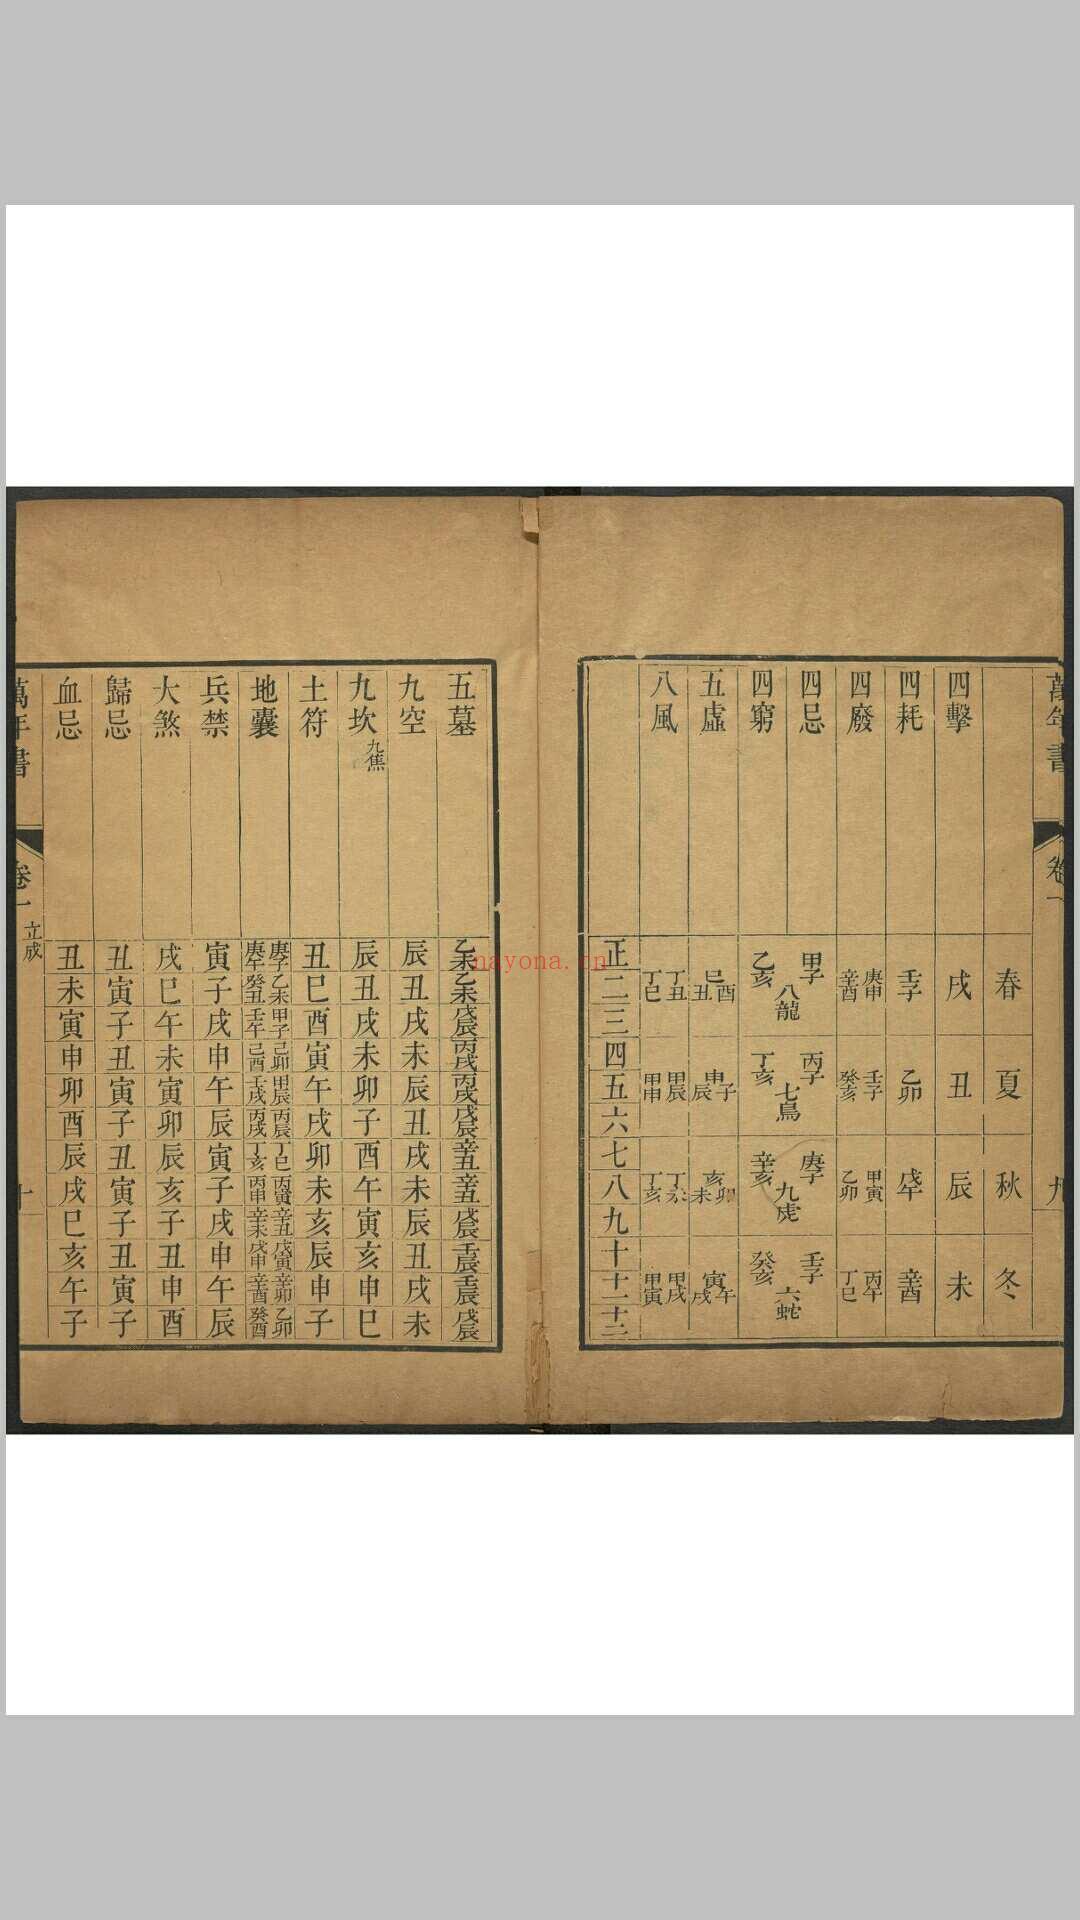 萬年書
卷一
九
春
夏
秋
冬
四擊
戌
丑
辰
未
四耗
壬子
乙卯
戊午
辛酉
四廢
庚申
辛酉
壬子
癸亥
甲寅
乙卯
丙午
丁巳
四忌
甲子
丙子
庚子
壬子
八龍
七鳥
九虎
六蛇
四窮
乙亥
丁亥
辛亥
癸亥
五虛
巳酉丑
申子辰
亥卯未
寅午戌
八風
丁丑
丁巳
甲辰
甲申
丁未
丁亥
甲戌
甲寅
正二三四五六七八九十十一十二
五墓
乙未乙未戊辰丙戌丙戌戊辰辛丑辛丑戊辰壬辰壬辰戊辰
九空
辰丑戌未辰丑戌未辰丑戌未
九坎
九焦
辰丑戌未卯子酉午寅亥申巳
土符
丑巳酉寅午戌卯未亥辰申子
地囊
庚子乙未甲子己卯甲辰丙辰丁巳丙寅辛丑戊寅辛卯乙卯
庚午癸丑壬午己酉壬戌丙戌丁亥丙申辛未戊申辛酉癸酉
兵禁
寅子戌申午辰寅子戌申午辰
大煞
戌巳午未寅卯辰亥子丑申酉
歸忌
丑寅子丑寅子丑寅子丑寅子
血忌
丑未寅申卯酉辰戌巳亥午子
萬年書
卷一
立成
十
nayona.cn